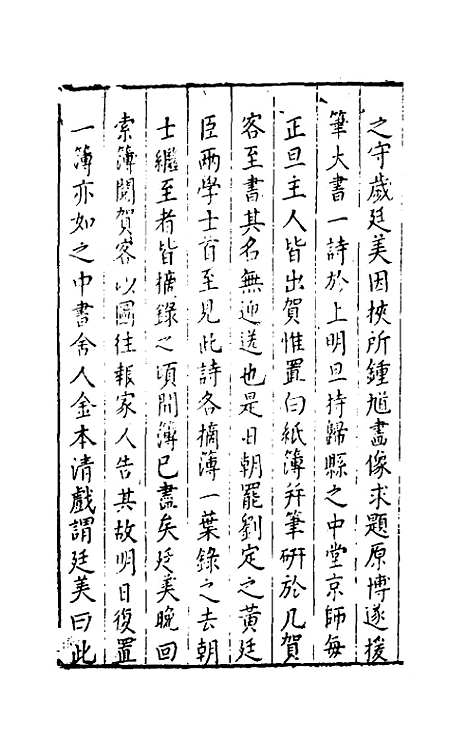 之守歲廷美因挾所鍾馗畵像求題原博遂援
筆大書一詩於上明旦持歸縣之中堂京師每
正旦主人皆出賀惟置白紙簿并筆研於几賀
客至書其名無迎送也是日朝罷劉定之黃廷
臣兩学士首至見此詩各摘簿一葉錄之去朝
士繼至者皆摘錄之頃間簿已盡矣廷美晚回
索簿閱賀客以圖往報家人告其故明日復置
一簿亦如之中書舍人金本清戲謂廷美曰此